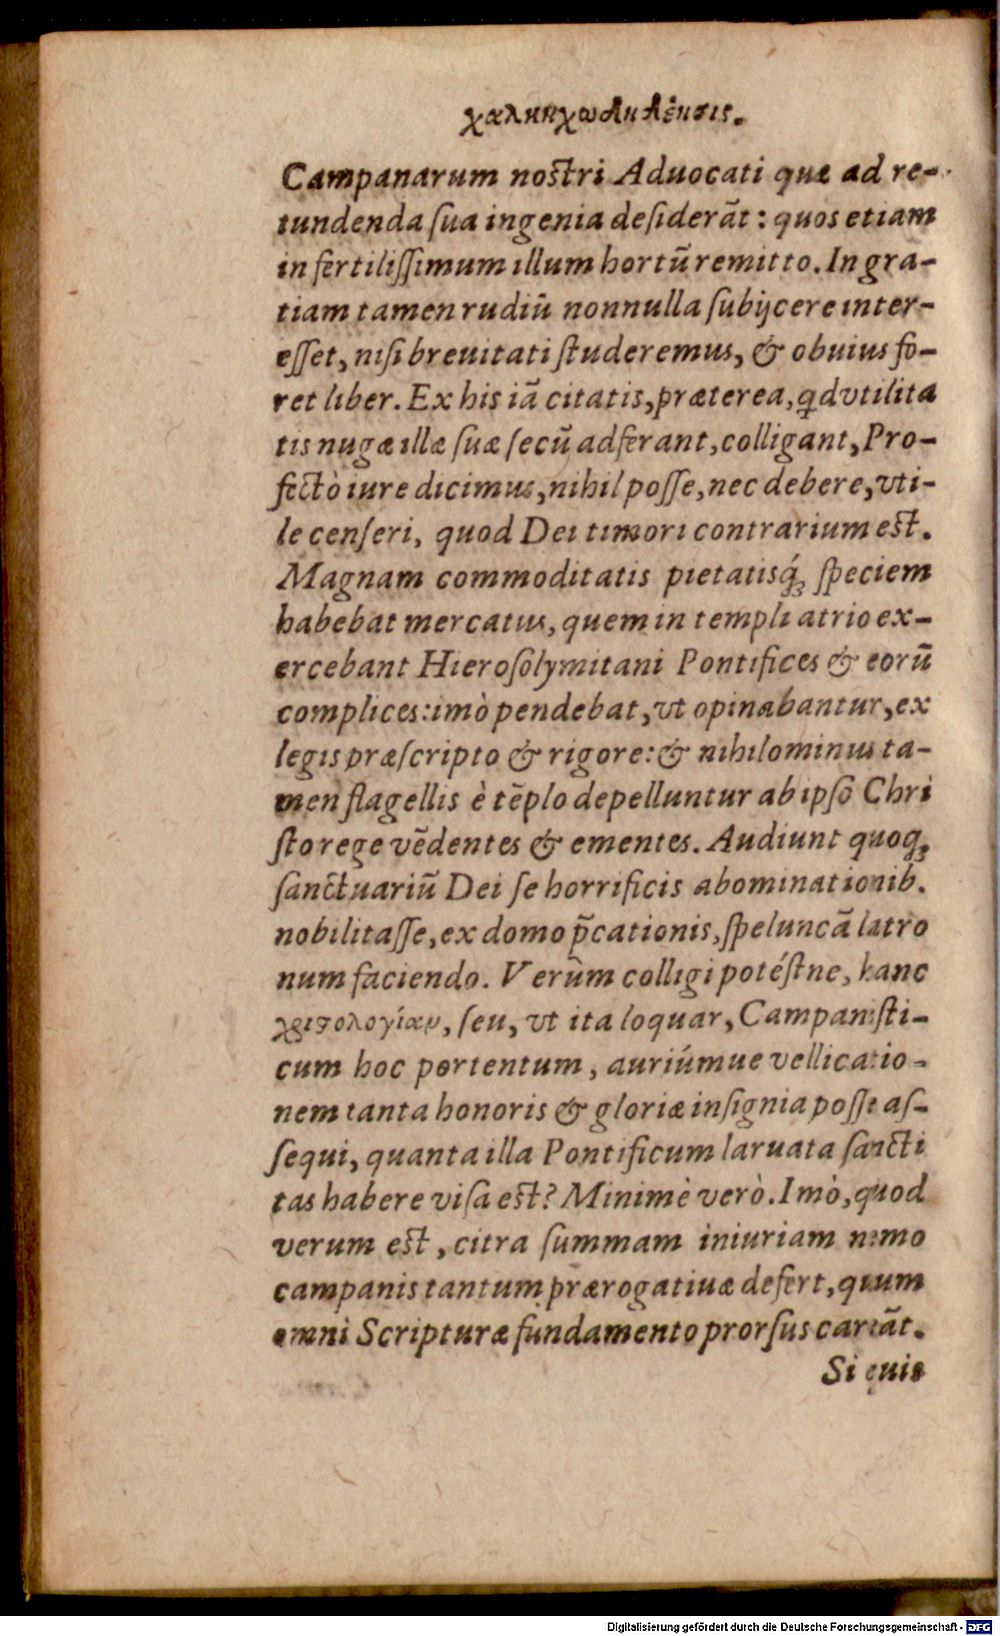 Campanarum noſtri Aduocati quæ ad re-
tundenda ſua ingenia deſiderãt: quos etiam
in fertiliſſimum illum hortũ remitto. In gra-
tiam tamen rudiũ nonnulla ſubijcere inter-
eſſet, niſi breuitati ſtuderemus, & obuius fo-
ret liber. Ex his iã citatis, præterea, qd vtilita
tis nugæ illæ ſuæ ſecũ adferant, colligant, Pro-
fectò iure dicimus, nihil poſſe, nec debere, vti-
le cenſeri, quod Dei timori contrarium eſt.
Magnam commoditatis pietatisq́; ſpeciem
habebat mercatus, quem in templi atrio ex-
ercebant Hieroſolymitani Pontifices & eorũ
complices: imò pendebat, vt opinabantur, ex
legis præſcripto & rigore: & nihilominus ta-
men flagellis è tẽplo depelluntur ab ipſo Chri
ſto rege vẽdentes & ementes. Audiunt quoq;
ſanctuariũ Dei ſe horrificis abominationib.
nobilitaſſe, ex domo p̃cationis, ſpeluncã latro
num faciendo. Verùm colligi potéſtne, hanc
χρισολογίαν, ſeu, vt ita loquar, Campaniſti-
cum hoc portentum, auriúmue vellicatio-
nem tanta honoris & gloriæ inſignia poſſe aſ-
ſequi, quanta illa Pontificum laruata ſancti
tas habere viſa eſt? Minimè verò. Imò, quod
verum eſt, citra ſummam iniuriam nemo
campanis tantum prærogatiuæ defert, quum
omni Scripturæ fundamento prorſus careãt.
Si quis
Digitalisierung gefördert durch die Deutsche Forschungsgemeinschaft - DFG